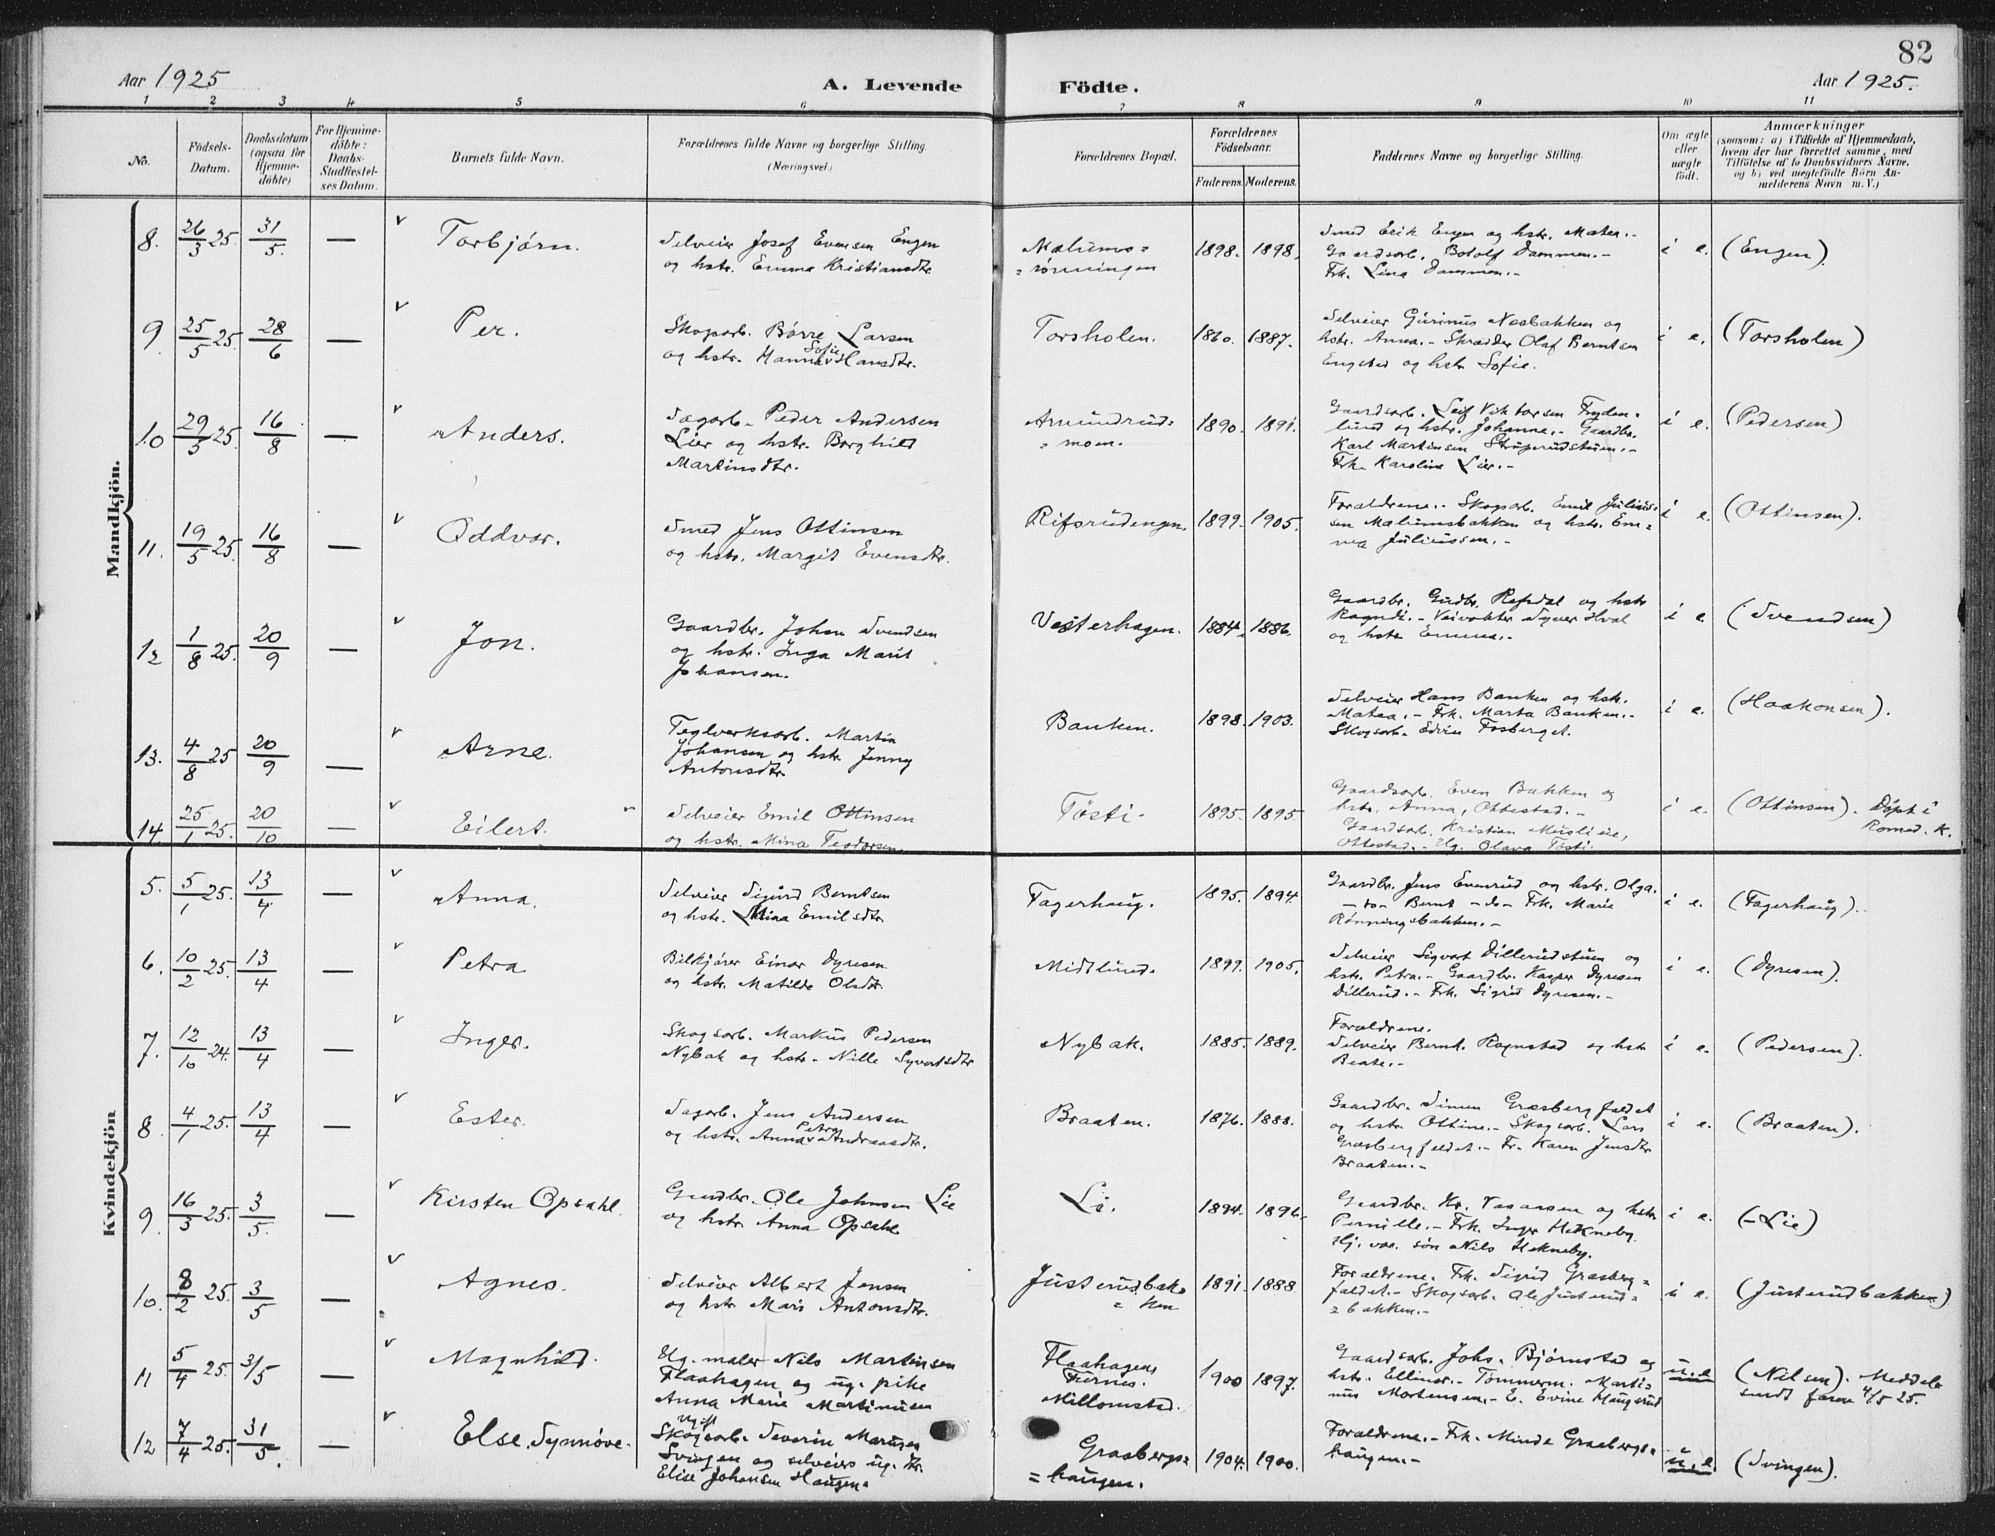 82
Aar 1925
A. Levende Födte.
Aar 1925.
1 2 3 4 5 6 7 8 9 10 11
No.
Födsels-
Datum.
Daabsdatum
(ogsaa for
Hjemme-
döbte)
For Hjemme-
döbte:
Daabs-
Stadfæstel-
ses Datum.
Barnets fulde Navn.
Forældrenes fulde Navne og borgerlige Stilling
(Næringsvei.)
Forældrenes Bopæl.
Forældrenes
Födselsaar.
Faderens. Moderens.
Faddernes Navne og borgerlige Stilling.
Om ægte
eller
uægte
födt.
Anmærkninger
(saasom: a) i Tilfælde af Hjemmedaab,
hvem der har forrettet samme, med
Tilföielse af to Daabsvidners Navne.
og b) ved uægtefödte Börn An-
melderens Navn m. V.)
Mandkjön.
8. 26/3 25. 31/5. — Torbjørn.
Selveier Josef Evensen Engen
og hstr. Emma Kristiansdtr
Mælums=
=rønningen
1898. 1898.
Smed Erik Engen og hstr. Matea.-
Gaardsarb. Botolf Dammen.-
Frk. Lina Dammen.-
i e. (Engen).
9. 25/5 25. 28/6 — Per.
Skogsarb. Børre Larsen
Sofie
og hstr. Hanna Hansdtr.
Torsholen.
1860. 1887.
Selveier Gurinus Næsbakken og
hstr. Anna.- Skrædder Olaf Berntsen
Engstad og hstr Sofie.
i e. (Torsholen)
10 29/3 25. 16/8 — Anders.
Sagarb. Peder Andersen
Lier og hstr. Borghild
Martinsdtr.
Amundrud=
=moen.
1890. 1891.
Gaardsarb. Leif Viktorsen Fryden=
lund og hstr. Johanne.- Gaardbr.
Karl Martinsen Strupsrudstuen.-
Frk. Karoline Lier.-
i e. (Pedersen)
11. 19/5 25. 16/8 — Oddvar.
Smed Jens Ottinsen
og hstr. Margit Evensdtr.
Rifsrudengen.
1899. 1905.
Forældrene.- Skogsarb. Emil Julius=
sen Mælumsbakken og hstr. Em=
ma Juliussen.-
i e. (Ottinsen).
12 1/8 25. 20/9 — Jon.
Gaardbr. Johan Svendsen
og hstr. Inga Marit
Johansen.
Vesterhagen.
1884. 1886.
Gaardbr. Gudbr. Refsdal og hstr
Ragndi.- Veivokter Syver Hval
og hstr Emma.-
i e (Svendsen)
13. 4/8 25 20/9 — Arne.
Teglverksarb. Martin
Johansen og hstr Jenny
Antonsdtr
Banken.
1898. 1903.
Selveier Hans Banken og hstr.
Matea.- Frk. Marta Banken.-
Skogsarb. Edvin Fosberget.
i e. (Haakonsen).
14. 25/1 25. 20/10 — Eilert.
Selveier Emil Ottinsen
og hstr. Mina Teodorsen
Tøsti.
1895. 1895
Gaardsarb. Even Bakken og
hstr. Anna, Ottestad.-
Gaardsarb. Kristian Muslilie,
Ottestad.- Ug. Olava Tøsti.
i e. (Ottinsen). Døpt i
Romed. K.
Kvindekjön
5. 5/1 25. 13/4 — Anna.
Selveier Sigurd Berntsen
og hstr. Mina Emilsdtr
Fagerhaug.
1895. 1894
Gaardbr. Jens Evenrud og hstr. Olga.
-do- Bernt -do- Frk. Marie
Rønningsbakken.-
i e. (Fagerhaug).
6. 10/2 25. 13/4 — Petra
Bilkjører Einar Dyresen
og hstr. Matilde Olsdtr.
Midtlund.
1899. 1905.
Selveier Sigvart Dillerudstuen og
hstr. Petra.- Gaardbr. Kasper Dyresen
Dillerud.- Frk. Sigrid Dyresen.-
i e. (Dyresen).
7. 12/10 24. 13/4 — Inger.
Skogsarb. Markus Pedersen
Nybak og hstr. Nille Syvertsdtr
Nybak.
1885. 1889.
Forældrene.
Selveier Bernt. Rognstad og hstr
Beate.-
i e. (Pedersen).
8. 4/1 25. 13/4 — Ester.
Sagarb. Jens Andersen
Petra
og hstr. Anna Andreasdtr.
Braaten.
1876. 1888.
Gaardbr. Simen Græsbergfeldet
og hstr Ottine.- Skogsarb. Lars
Græsbergfeldet.- Fr. Karen Jensdtr
Braaten.-
i e. (Braaten).
9. 16/3 25. 3/5. — Kirsten Opsahl.
Gaardbr. Ole Johnsen Lie
og hstr Anna Opsahl
Li.
1894. 1896.
Gaardbr. Kr. Vasaasen og hstr
Pernille.- Frk. Inger Hekneby.
Hj. vær. søn Nils Hekneby.
i e. (-Lie)
10. 8/2 25. 3/5 — Agnes.
Selveier Albert Jensen
og hstr Mari Antonsdtr.
Justerudbak=
=ken
1891. 1888
Forældrene. Frk. Sigrid Græsberg=
feldet.- Skogsarb. Ole Justerud=
=bakken.-
i e. (Justerudbakken)
11 5/4 25. 3/5 — Magnhild.
Ug. maler Nils Martinsen
Flaahagen og ug. pike
Anna Marie Martinusen
Flaahagen
Furnes.
Millomstad.
1900 1897.
Gaardsarb. Johs. Bjørnstad og
hstr. Ellinor.- Tømmerm. Marti=
nus Mortensen.- E. Evine Haugsrud
u.e (Nilsen). Meddel
sendt faren 4/5 25.
12 7/4 25. 31/5. — Else Synnøve.
Ugift
Skogsarb. Severin Marius
Svingen og selveiers ug. dtr.
Elise Johansen Haugen.
Græsbergs=
=haugen.
1904. 1900.
Forældrene.- Frk. Minda Græsbergs=
haugen.-
u.e (Svingen).